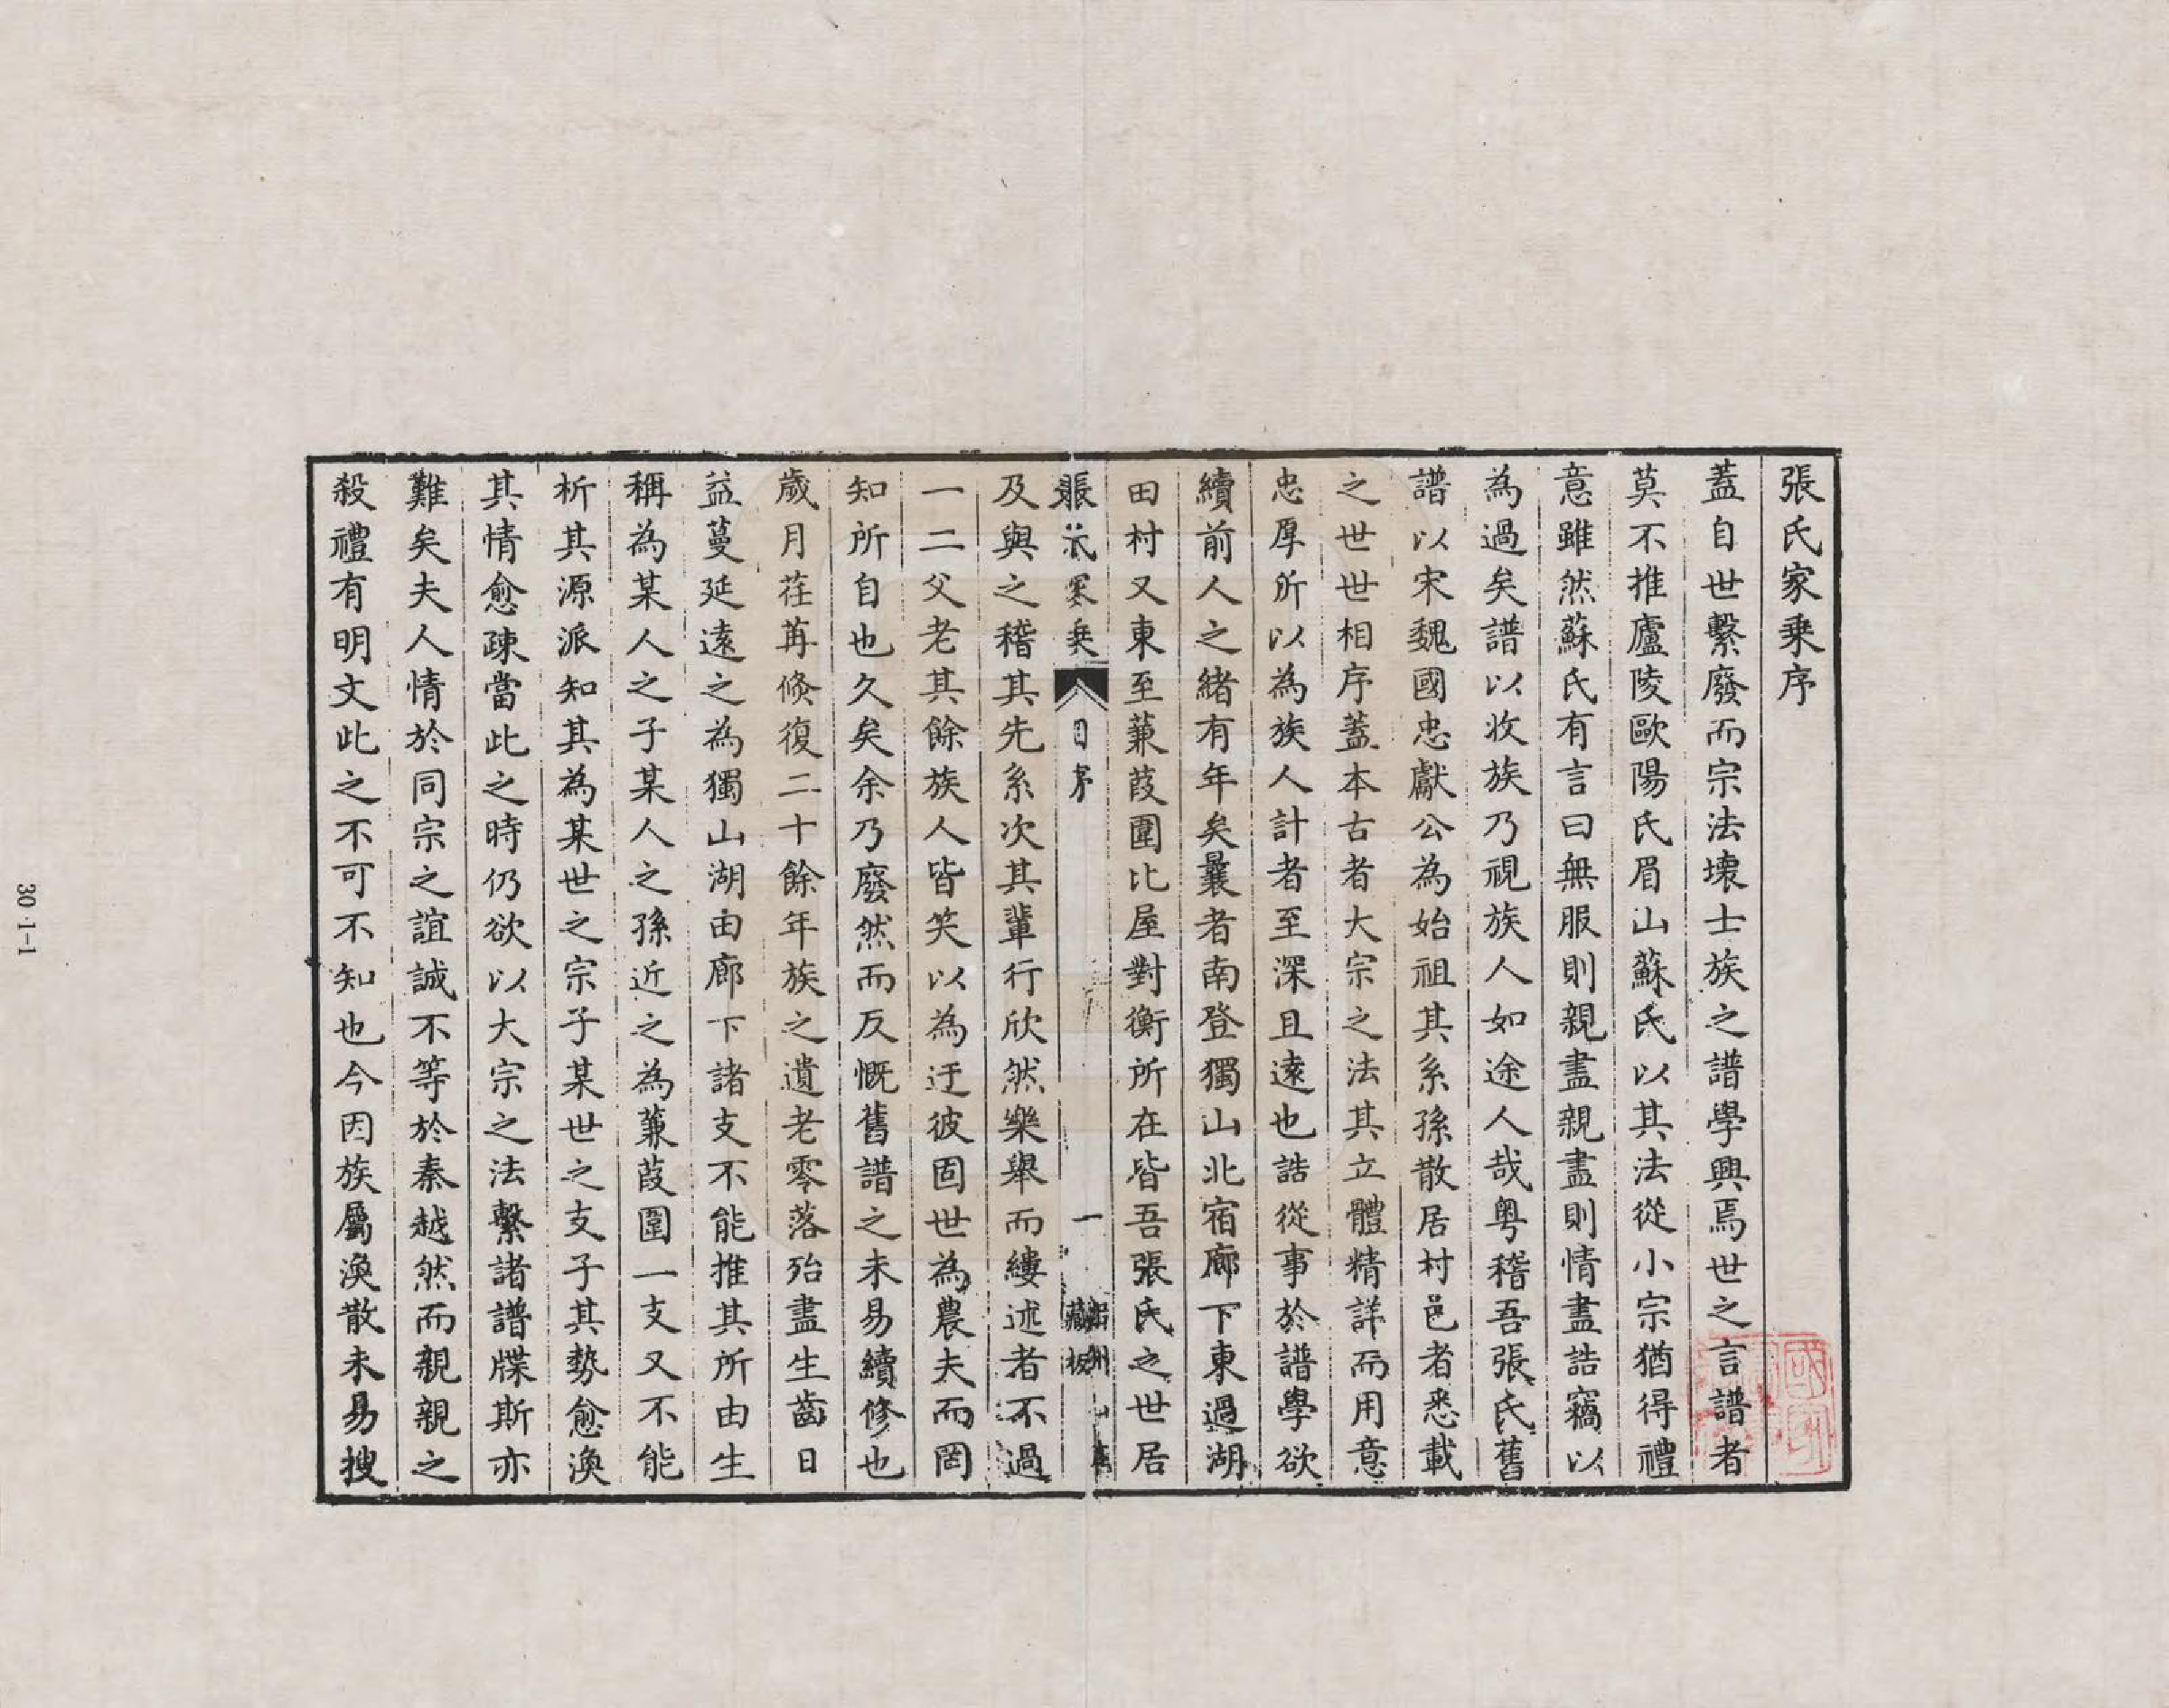 張氏家乗序
蓋自世繫廢而宗法壞士族之譜學興焉世之言譜者
莫不推廬陵歐陽氏眉山蘇氏以其法從小宗猶得禮
意雖然蘇氏有言曰無服則親盡親盡則情盡誥竊以
為過矣譜以收族乃視族人如途人哉粤稽吾張氏舊
譜以宋魏國忠獻公為始祖其系孫散居村邑者悉載
之世世相序蓋本古者大宗之法其立體精詳而用意
忠厚所以為族人計者至深且遠也誥從事於譜學欲
續前人之緒有年矣曩者南登獨山北宿廊下東過湖
田村又東至蒹葭圍比屋對衡所在皆吾張氏之世居
張氏家乗
目序
一
藏板
及與之稽其先系次其輩行欣然樂舉而縷述者不過
一二父老其餘族人皆笑以為迂彼固世為農夫而罔
知所自也久矣余乃廢然而反慨舊譜之未易續修也
歲月荏苒倏復二十餘年族之遺老零落殆盡生齒日
益蔓延遠之為獨山湖田廊下諸支不能推其所由生
稱為某人之子某人之孫近之為蒹葭圍一支又不能
析其源派知其為某世之宗子某世之支子其勢愈渙
其情愈疎當此之時仍欲以大宗之法繫諸譜牒斯亦
難矣夫人情於同宗之誼誠不等於秦越然而親親之
殺禮有明文此之不可不知也今因族屬渙散未易搜
30·1-1